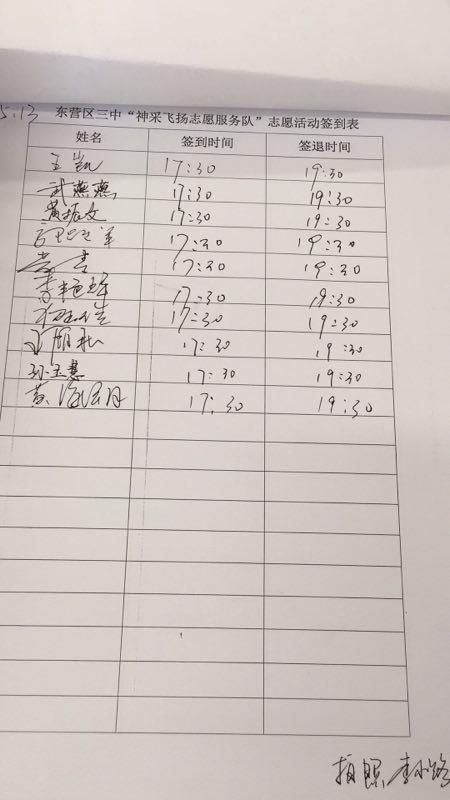 5.13
东营区三中“神采飞扬志愿服务队”志愿活动签到表
姓名 签到时间 签退时间
王凯 17:30 19:30
武燕燕 17:30 19:30
黄振文 17:30 19:30
17:30 19:30
17:30 19:30
李艳辉 17:30 19:30
17:30 19:30
17:30 19:30
孙玉慧 17:30 19:30
黄海滨 17:30 19:30
拍照 李小路